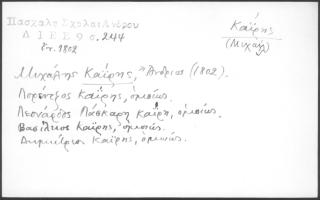 Πασχάλη Σχολαὶ Ἄνδρου
ΔΙΕΕ 9ο. 244
ἔτ. 1802
Καΐρης
(Μιχαὴλ)
Μιχάλης Καΐρης, "Ἄνδριος (1802).
Λορέντζος Καΐρης, ὁμοίως.
Λεονάρδος Πάσκαρη Καΐρη, ὁμοίως.
Βασίλειος Καΐρης, ὁμοίως.
Δημήτριος Καΐρης, ὁμοίως.